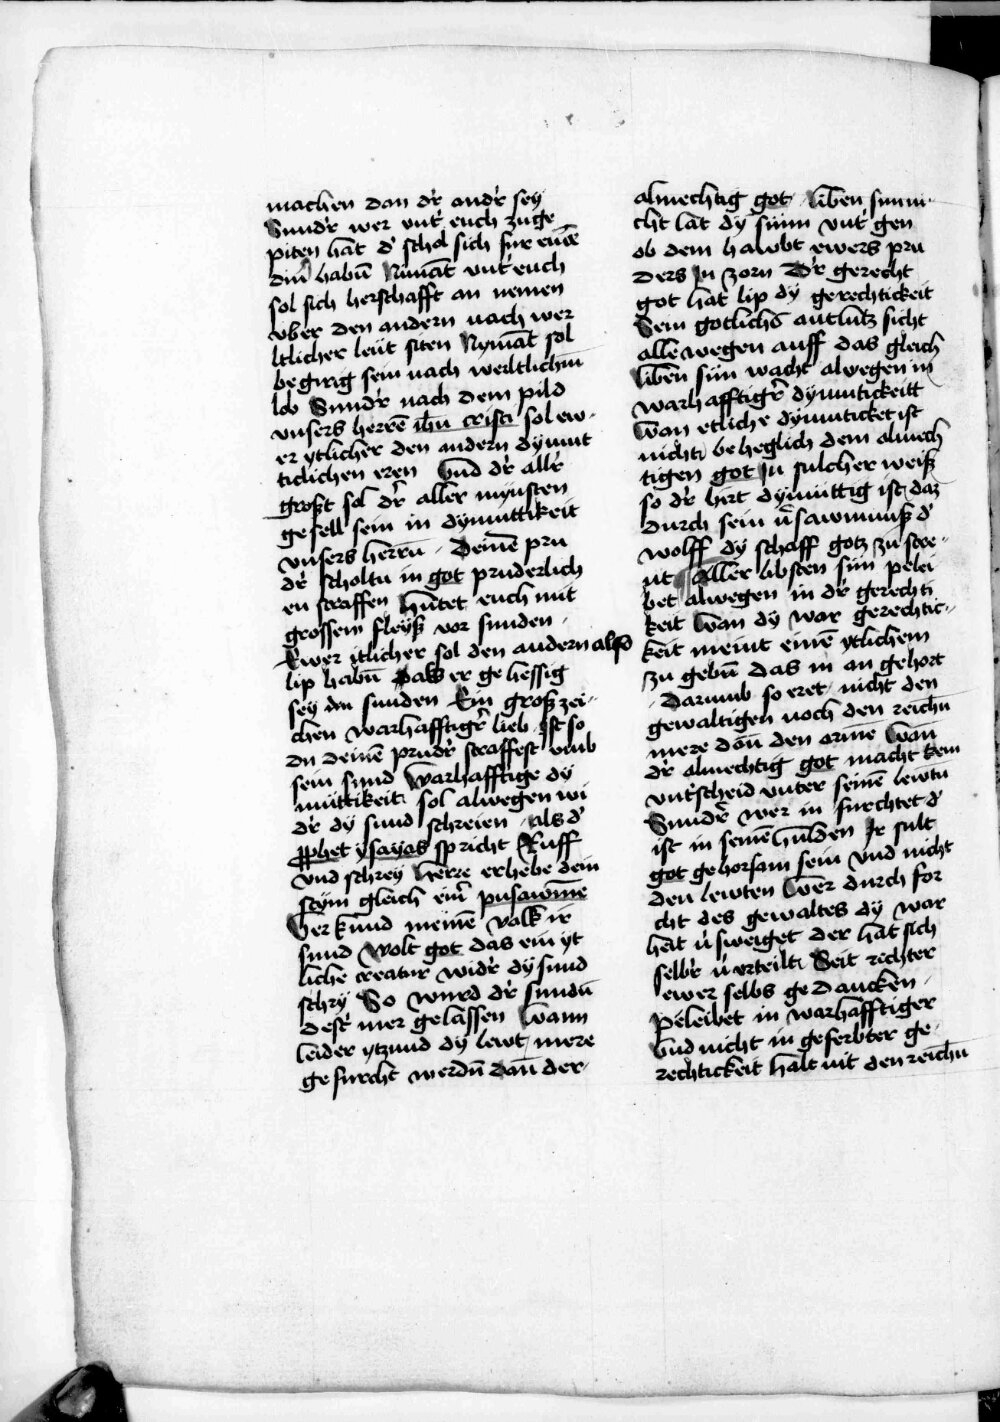 machen dan dr̉ andr̉ sey
Sundr̉ wer vnt̉ euch zu ge
piten hat d̉ schol sich fur ewr̄
din̄ habn̄ Nimāt vnt̉ euch
sol sich herschafft an nemen
vber den andern nach wer
ltlicher leüt siten Nymāt sol
begirig sein nach weltlichm̄
lob Sundr̉ nach dem pild
vnsers herrē ihū cristi sol ew-
er ytlicher den andern dÿmut
ticlichen eren Vnd dr̉ allr̉
groſzt sol dr̉ aller mynsten
gesell sein in dÿmuttikeit
vnsers herrn̄ · Deinē pru
dr̉ scholtu in got pruderlich
en straffen hutet euch mit
grossem fleyſz vor sunden ·
Ewer itlicher sol den andern also
lip habn̄ das er ge hessig
sey den sunden Ein groſz zei-
chen warhafftigr̉ lieb ist so
du deinē prudr̉ straffest vmb
sein sund Warhafftige dÿ
muttikeit sol alwegen wi
dr̉ dÿ sund schreien · als d̉
ꝓphet ysayas spricht Ruff
vnd schrey herre erhebe dein
stym gleich eim̉ pusawm̄e
Verkund meinē volk ir
sund Wolt got das ein yt
liche creatur widr̉ dÿ sund
schry So wurd dr̉ sundn̄
dest̉ mer gelassen Wann
leider ytzund dy lewt mere
gefurcht werdn̄ dan̄ der
almechtig got · Liben sun ni-
cht lat dÿ sunn vnt̉ gen
ob dem hawbt ewers pru
ders Jn zorn Dr̉ gerecht
got hat lip dy gerechtickeit
Sein gotlichs antlutz sicht
alle wegen auff das gleich
Liben sün wacht alwegen in
warhafftigr̉ dÿmutickeitt
Wan etliche dÿmuticket ist
nicht beheglich dem almech
tigen got Jn sulcher weiſz
so dr̉ hirt dÿmüttig ist daz
durch sein v̉sawmnuſz d̉
wolff dÿ schaff gotz zu stre-
ut Aller libsten sün pelei
bet alwegen in dr̉ gerechti
keit Wan dÿ war gerechtic-
keit meint einē ytlichem
zu gebn̄ das in an gehort
· Darumb so eret nicht den
gewaltigen noch den reichn̄
mere dan̄ den armē Wan
dr̉ almechtig got macht kein
vnt̉scheid vnter seinē lewtn̄
Sundr̉ wer in furchtet d̉
ist in seinē hulden Jr sult
got gehorsam sein vnd nicht
den lewten Wer durch for
cht des gewaltes dÿ war
heit v̉sweiget der hat sich
selbr̉ v̉urteilt Seit richter
ewer selbs gedancken ·
Peleibet in warhafftiger
Vnd nicht in geferbter ge-
rechtickeit halt nit den reichn̄